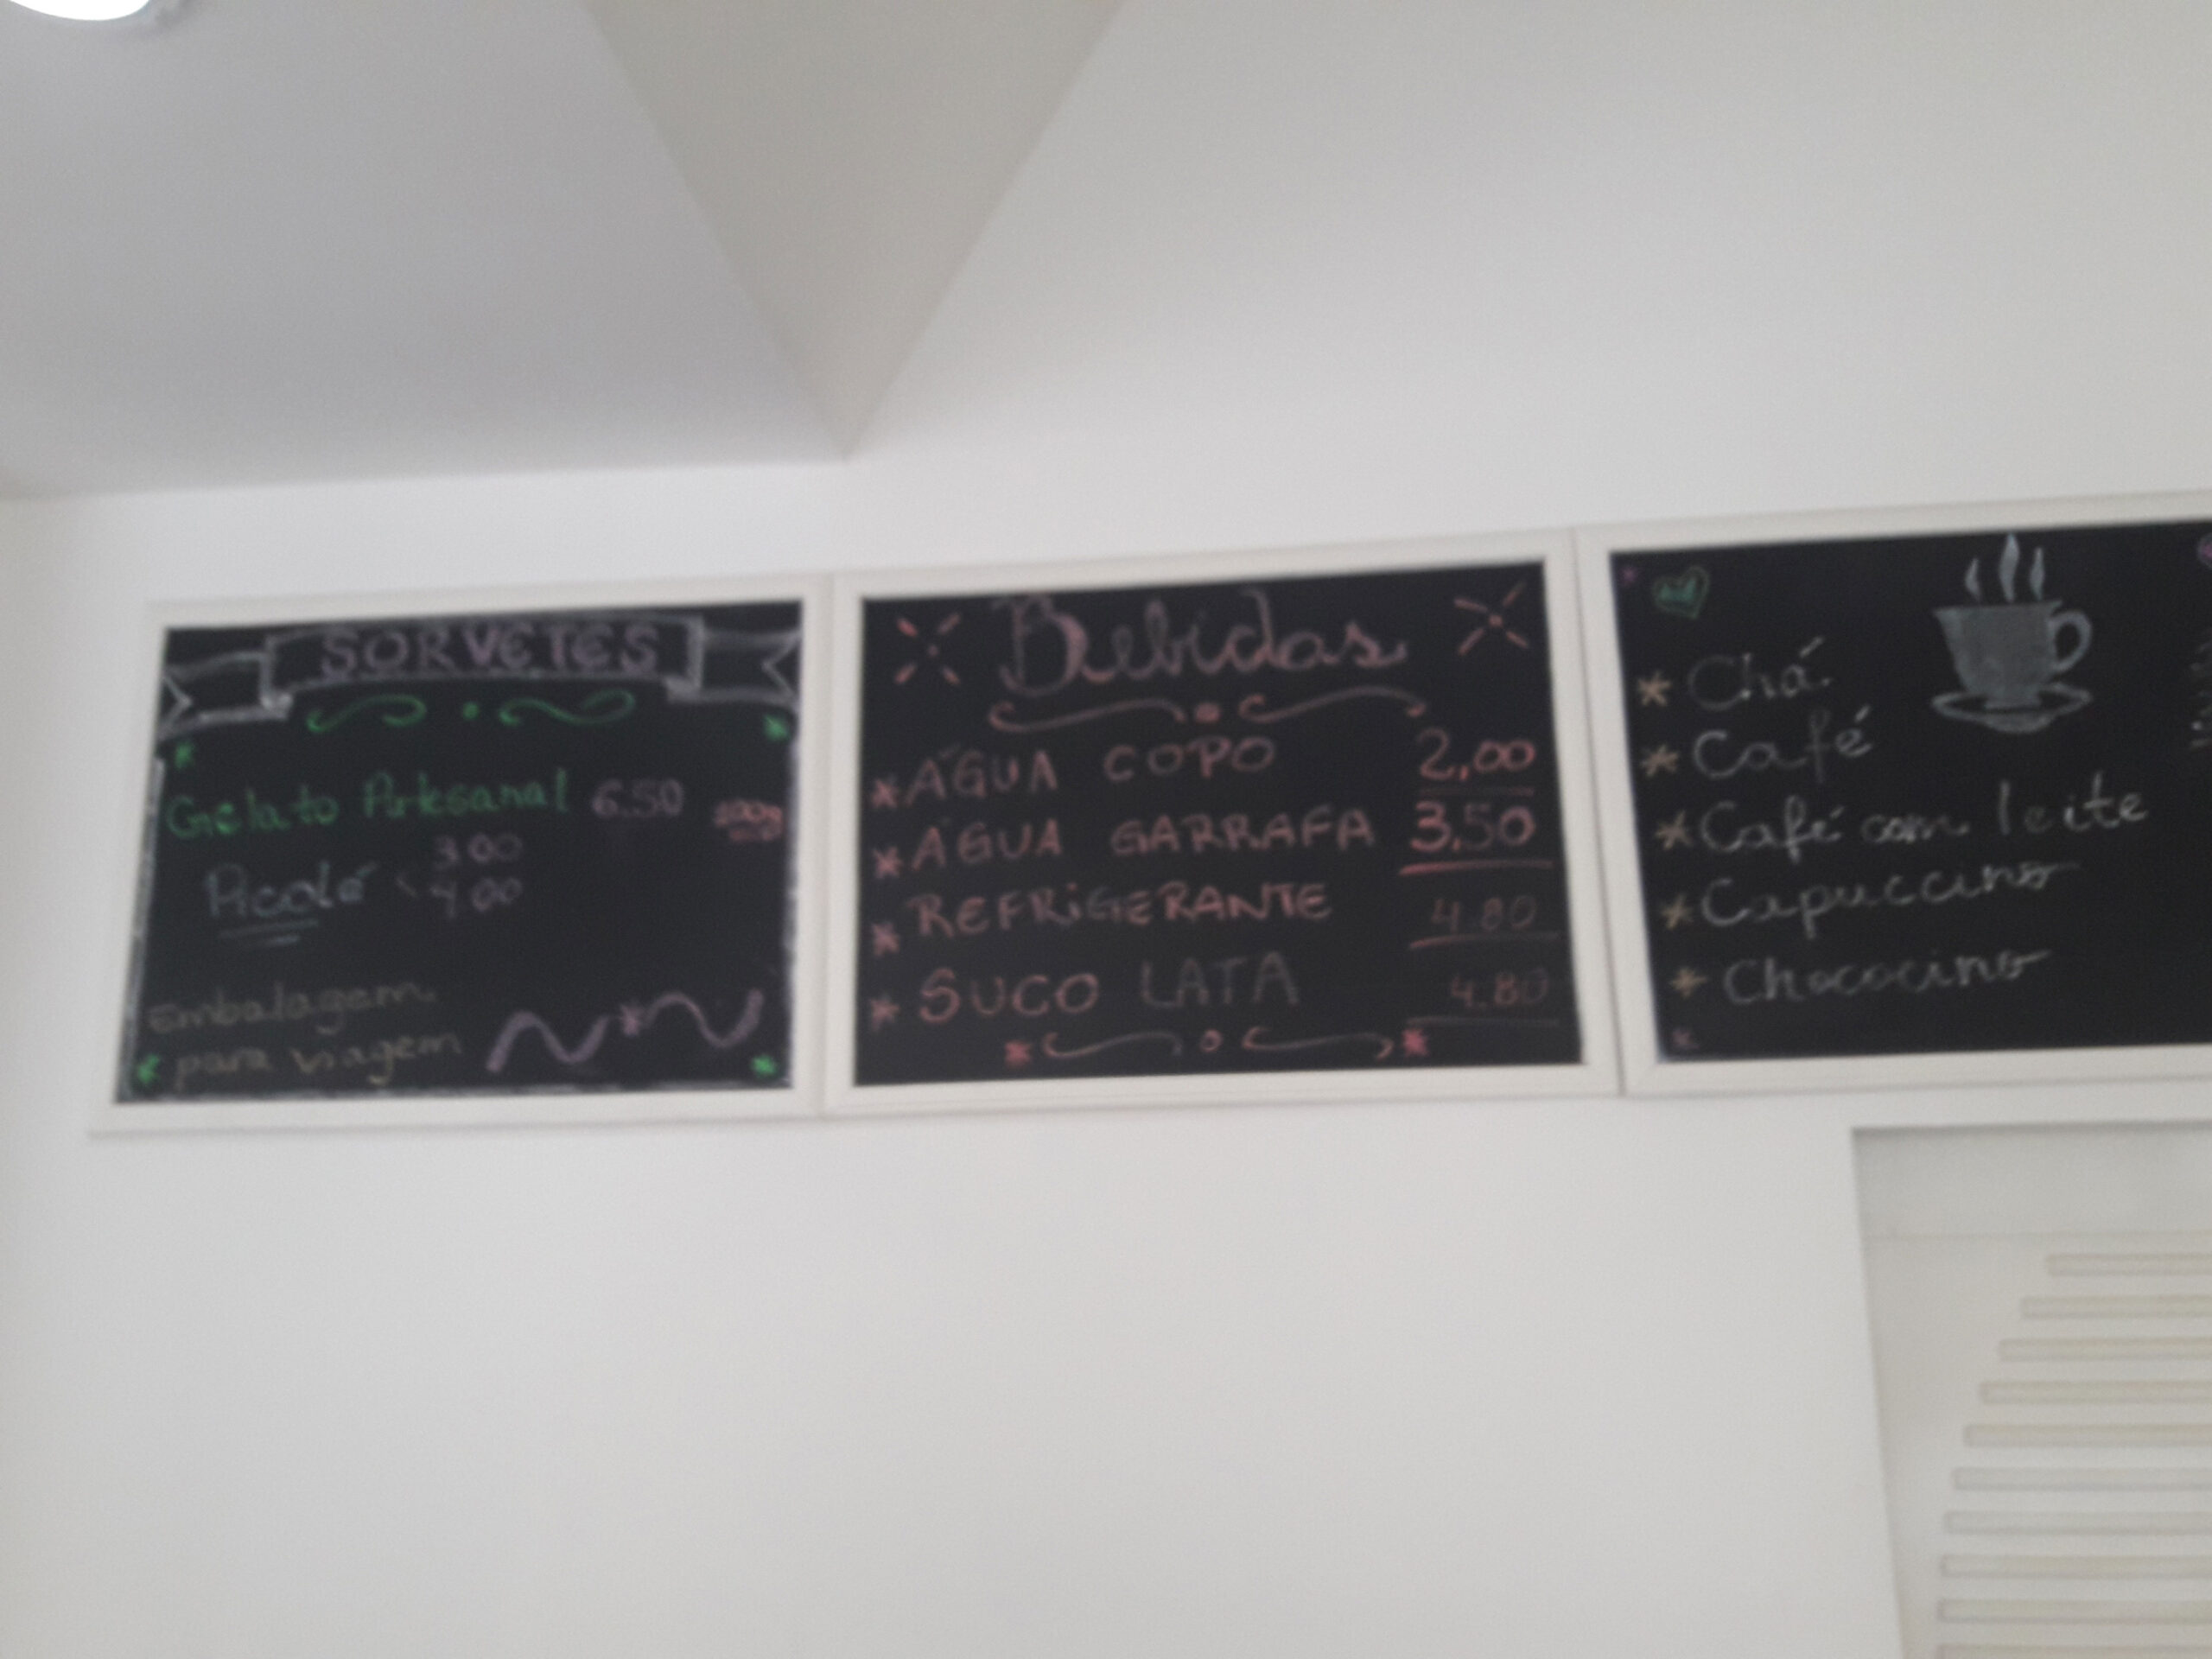 SORVETES
Gelato Artesanal 6.50 100g
Picolé 3.00
4.00
Embalagem
para viagem
Bebidas
ÁGUA COPO 2,00
ÁGUA GARRAFA 3,50
REFRIGERANTE 4.80
SUCO LATA 4.80
Chá
Café
Café com leite
Capuccino
Chococino